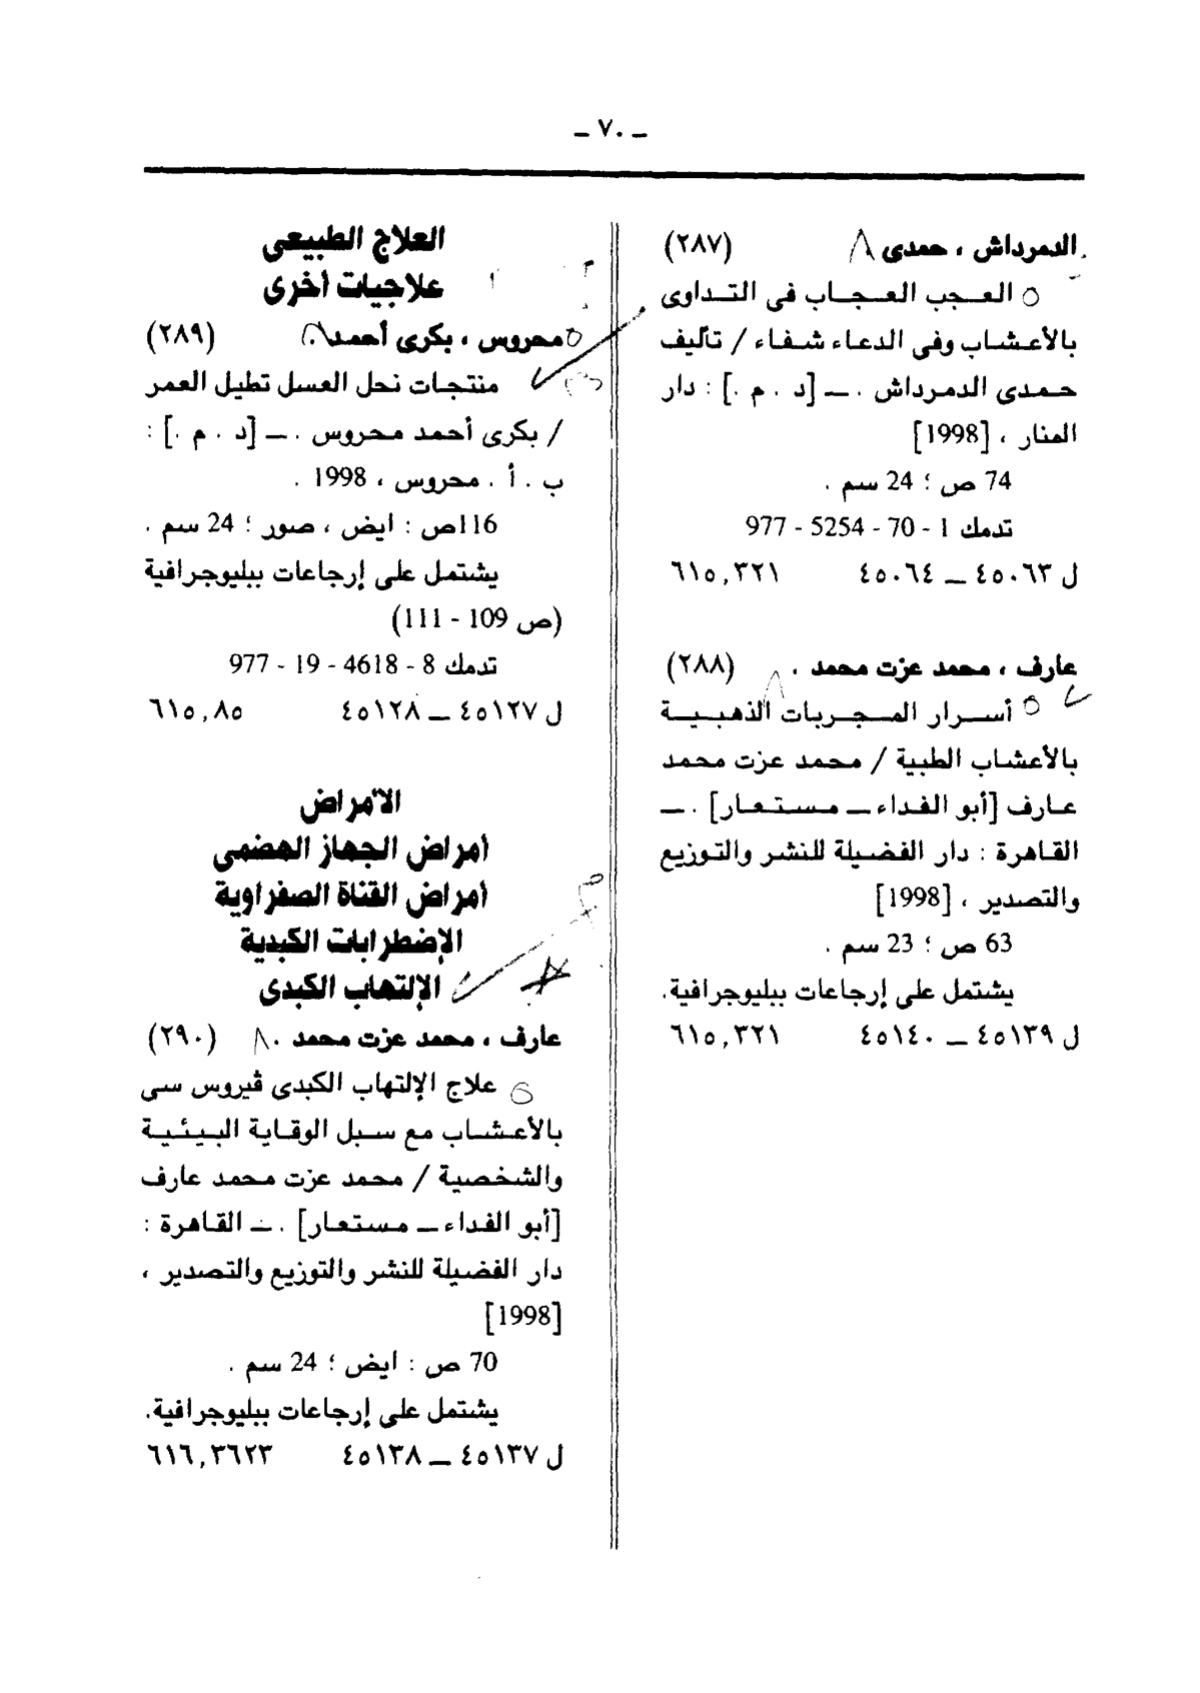 ـ ٧٠ ـ
الدمرداش ، حمدى (٢٨٧)
العجب العجاب فى التداوى
بالأعشاب وفى الدعاء شفاء / تأليف
حمدى الدمرداش . ـ [د . م .] : دار
المنار ، [1998]
74 ص ؛ 24 سم .
تدمك 1 - 70 - 5254 - 977
ل ٤٥٠٦٣ ـ ٤٥٠٦٤ ٦١٥,٣٢١
عارف ، محمد عزت محمد . (٢٨٨)
أسرار المجربات الذهبية
بالأعشاب الطبية / محمد عزت محمد
عارف [أبو الفداء ـ مستعار] . ـ
القاهرة : دار الفضيلة للنشر والتوزيع
والتصدير ، [1998]
63 ص ؛ 23 سم .
يشتمل على إرجاعات ببليوجرافية.
ل ٤٥١٣٩ ـ ٤٥١٤٠ ٦١٥,٣٢١
العلاج الطبيعى
علاجيات أخرى
محروس ، بكرى أحمد . (٢٨٩)
منتجات نحل العسل تطيل العمر
/ بكرى أحمد محروس . ـ [د . م .] :
ب . أ . محروس ، 1998 .
116ص : ايض ، صور ؛ 24 سم .
يشتمل على إرجاعات ببليوجرافية
(ص 109 - 111)
تدمك 8 - 4618 - 19 - 977
ل ٤٥١٢٧ ـ ٤٥١٢٨ ٦١٥,٨٥
الأمراض
أمراض الجهاز الهضمى
أمراض القناة الصفراوية
الإضطرابات الكبدية
الإلتهاب الكبدى
عارف ، محمد عزت محمد . (٢٩٠)
علاج الإلتهاب الكبدى ڤيروس سى
بالأعشاب مع سبل الوقاية البيئية
والشخصية / محمد عزت محمد عارف
[أبو الفداء ـ مستعار] . ـ القاهرة :
دار الفضيلة للنشر والتوزيع والتصدير ،
[1998]
70 ص : ايض ؛ 24 سم .
يشتمل على إرجاعات ببليوجرافية.
ل ٤٥١٣٧ ـ ٤٥١٣٨ ٦١٦,٣٦٢٣